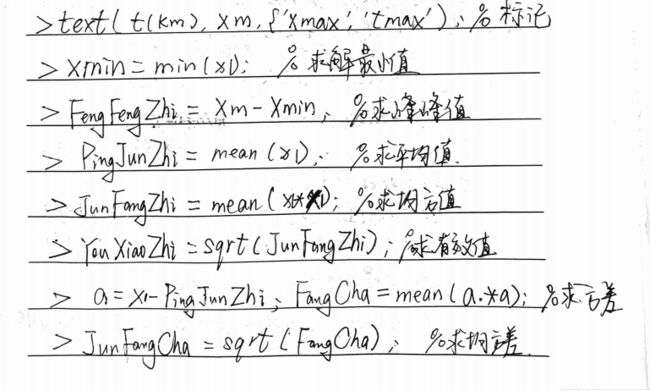 > text(t(km), xm, {'xmax', 'tmax'); % 标记
> xmin = min(x1); % 求解最小值
> FengFengZhi = xm - xmin; % 求峰峰值
> PingJunZhi = mean(x1); % 求平均值.
> JunFangZhi = mean( ); % 求均方值
> YouXiaoZhi = sqrt(JunFangZhi); % 求有效值
> a = x1 - PingJunZhi; FangCha = mean(a.*a); % 求方差
> JunFangCha = sqrt(FangCha); % 求均方差.